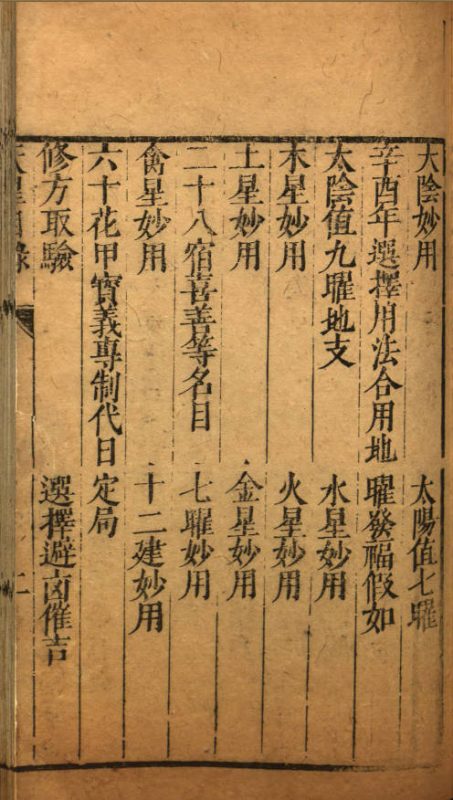 太陰妙用 太陽值七曜
辛酉年選擇用法合用地曜發福假如
太陰值九曜地支 水星妙用
木星妙用 火星妙用
土星妙用 金星妙用
二十八宿喜善等名目 七曜妙用
禽星妙用 十二建妙用
六十花甲寶義專制代日定局
修方取驗 選擇避凶催吉
天星目錄 二